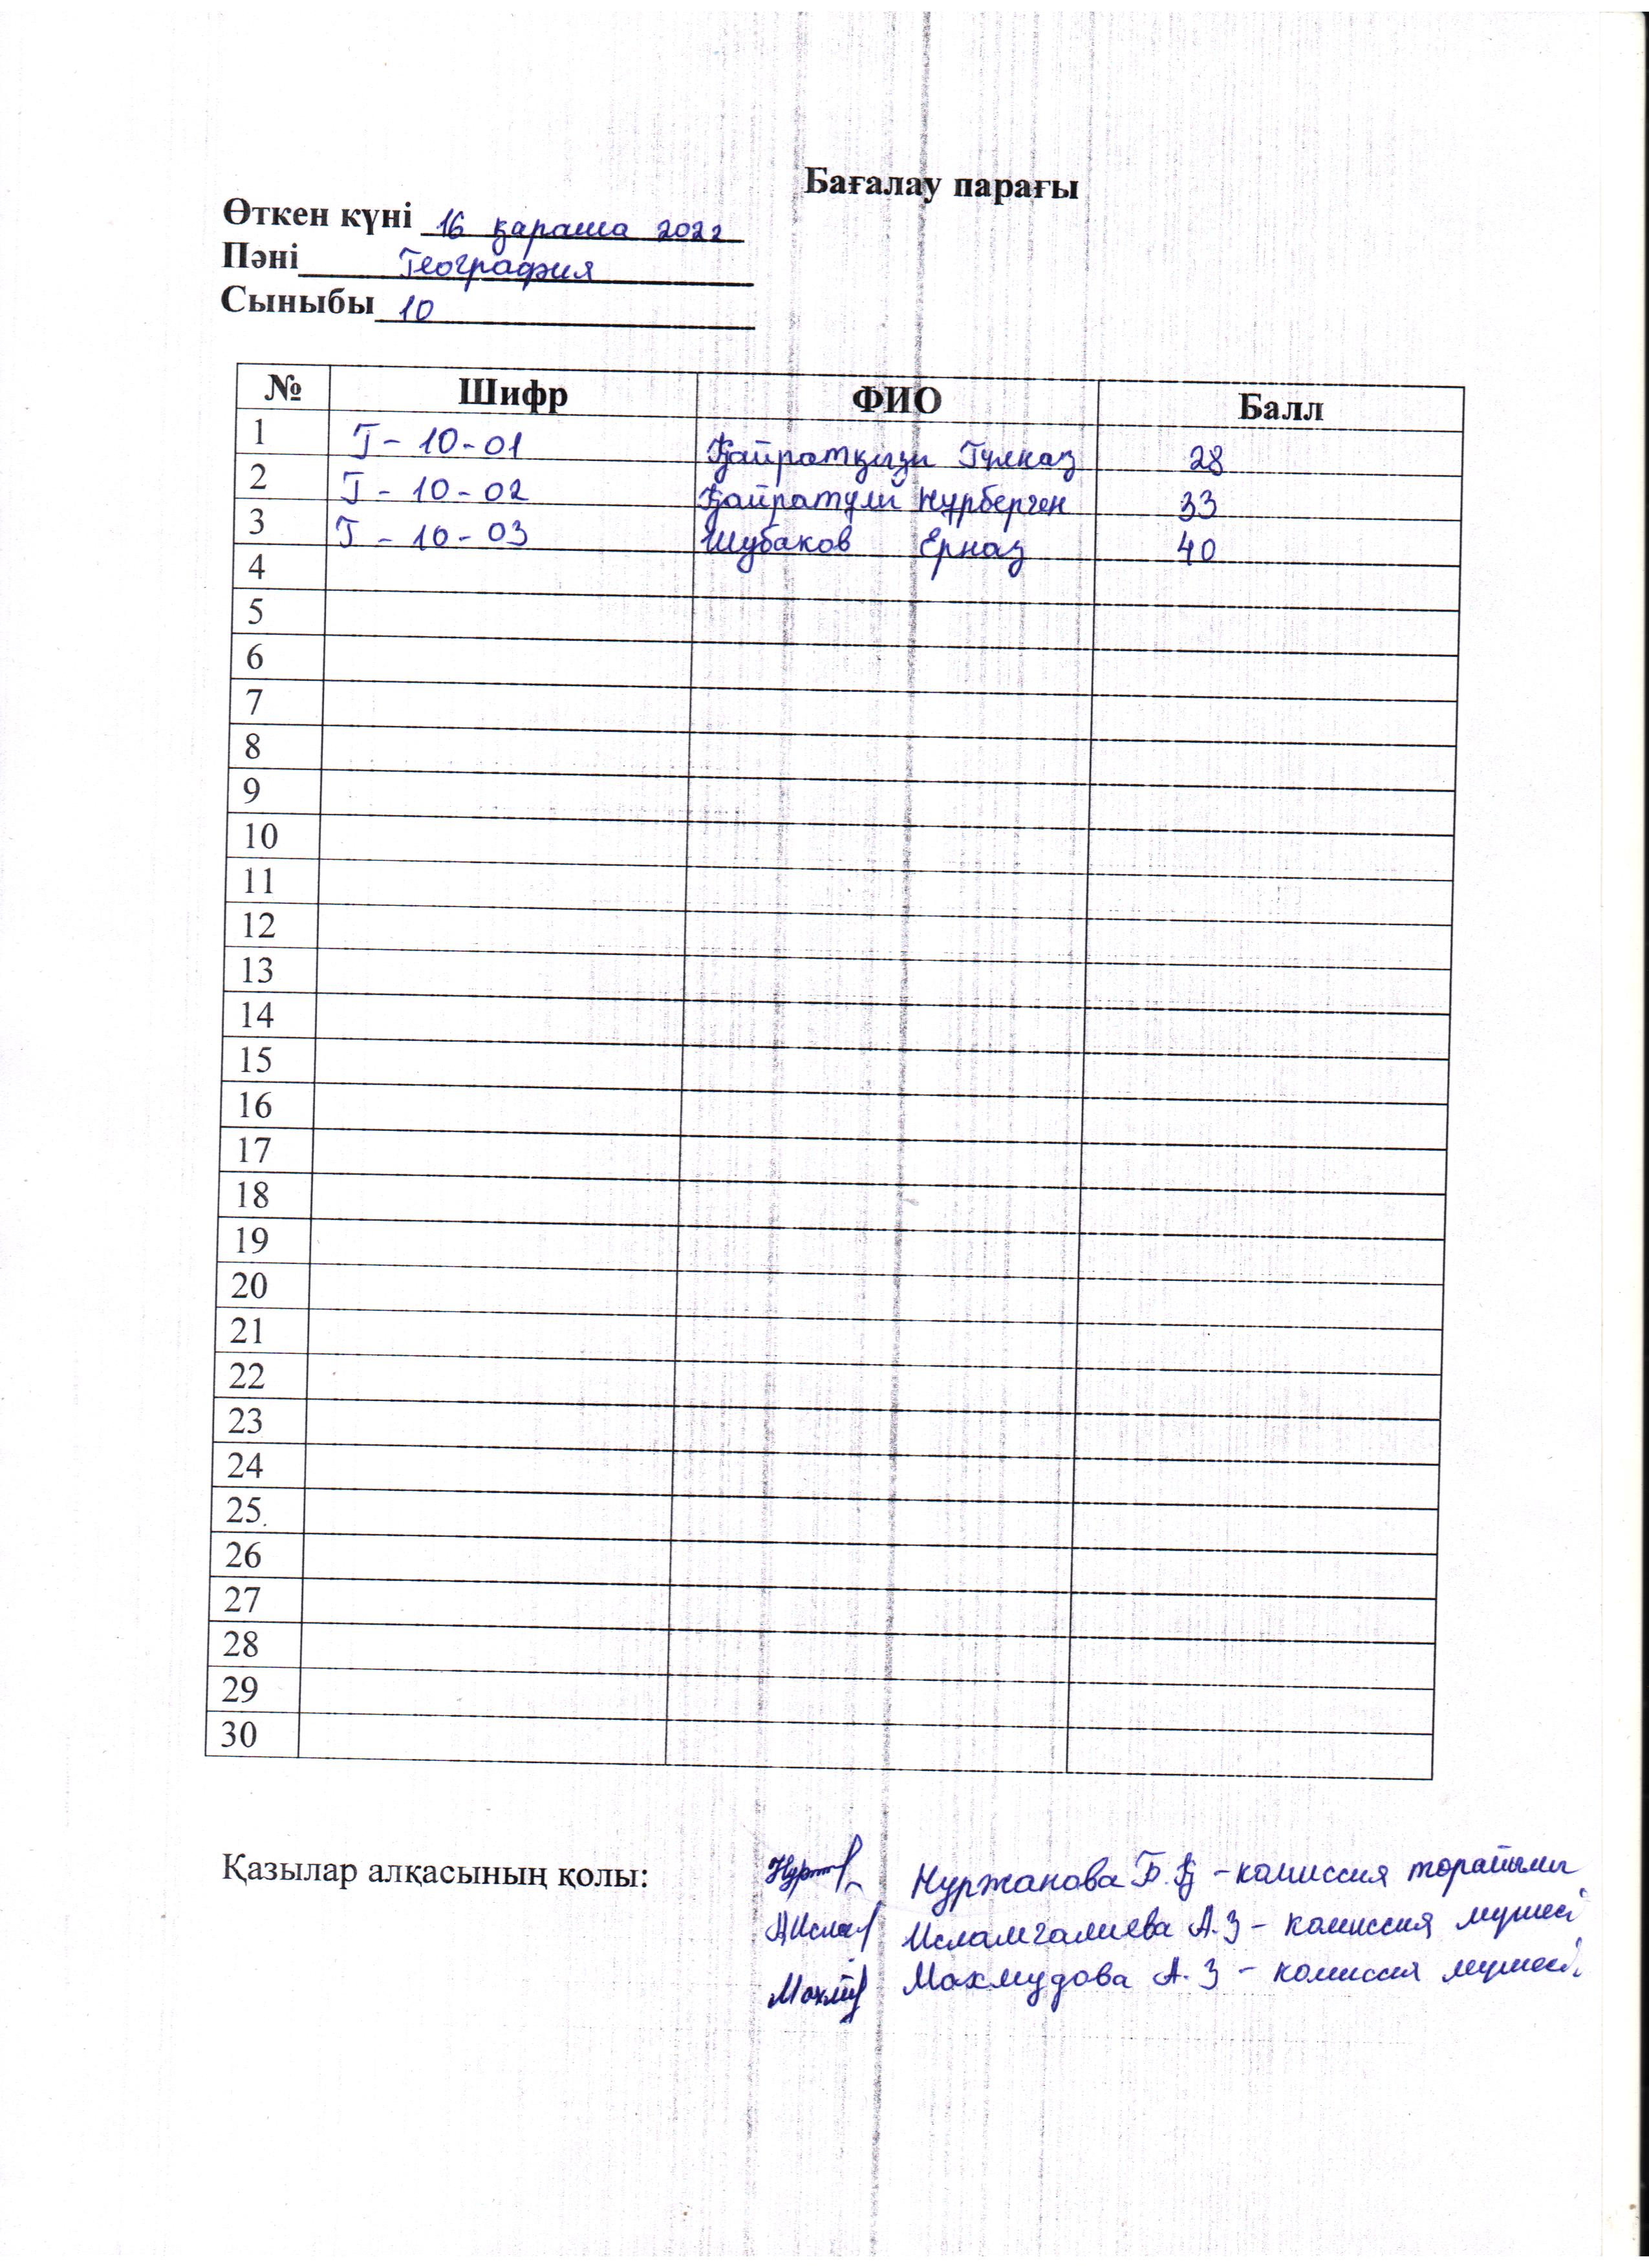 Бағалау парағы
Өткен күні 16 қараша 2022
Пәні География
Сыныбы 10
№ Шифр ФИО Балл
1 Г-10-01 Қайратқызы Гүлназ 28
2 Г-10-02 Қайратұлы Нұрберген 33
3 Г-10-03 Шубаков Ерназ 40
4
5
6
7
8
9
10
11
12
13
14
15
16
17
18
19
20
21
22
23
24
25
26
27
28
29
30
Қазылар алқасының қолы: Нуржанова Б.Қ - комиссия төрайымы
Исламгалиева А.З - комиссия мүшесі
Махмудова А.З - комиссия мүшесі